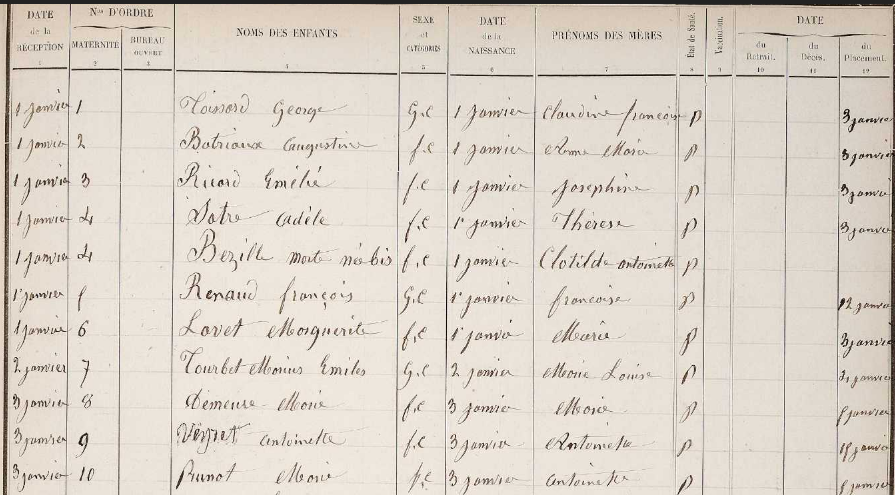 DATE de la RÉCEPTION Nos D'ORDRE MATERNITÉ BUREAU OUVERT NOMS DES ENFANTS SEXE et CATÉGORIES DATE de la NAISSANCE PRÉNOMS DES MÈRES État de Santé. Vaccination. DATE du Retrait. du Décès. du Placement.
1 2 3 4 5 6 7 8 9 10 11 12
1 janvier 1 George G.c 1 janvier Claudine françoise p 3 janvier
1 janvier 2 Augustine f.c 1 janvier Anne Marie p 3 janvier
1 janvier 3 Ricard Emélie f.c 1 janvier Joséphine p 3 janvier
1 janvier 4 Adèle f.c 1r janvier Thérèse p 3 janvier
1 janvier 4 Bezille morte née bis f.c 1 janvier Clotilde antoinette p
1r janvier 5 Renaud françois G.c 1r janvier francoise p 12 janvier
1 janvier 6 Lovet Marguerite f.c 1r janvier Marie p 3 janvier
2 janvier 7 Tourbet Marius Emiles G.c 2 janvier Marie Louise p janvier
3 janvier 8 Demeure Marie f.c 3 janvier Marie p janvier
3 janvier 9 antoinette f.c 3 janvier Antoinette p janvier
3 janvier 10 Prunot Marie f.c 3 janvier antoinette p janvier